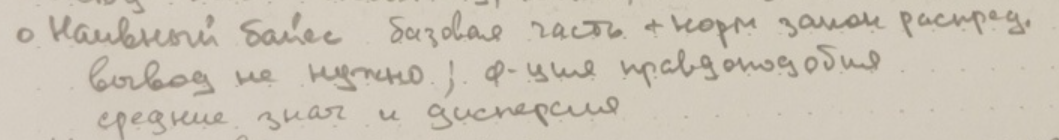 о Наивный байес базовая часть + норм закон распред.
вывод не нужно ; ф-ция правдоподобия
средние знач и дисперсия